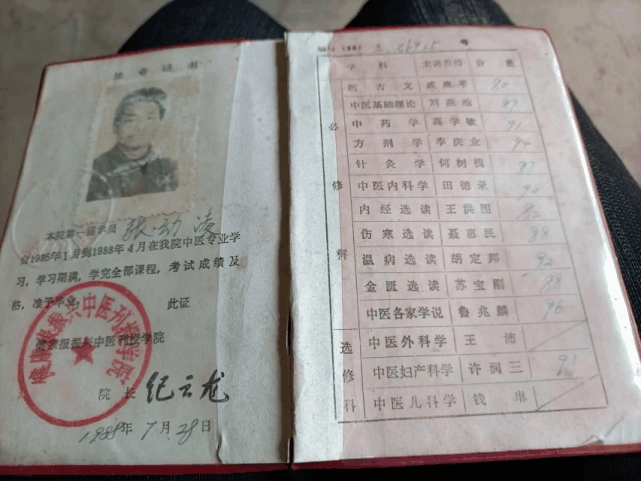 毕业证书
本院第一届学员 张劲凌
自1985年1月到1988年4月在我院中医专业学
习，学习期满，学完全部课程，考试成绩及
格，准予毕业。
此证
健康报振兴中医刊授学院
院长 纪云龙
1988年7月28日
号
学科 主讲教师 分数
必修科
医古文 戚燕平
中医基础理论 刘燕池
中药学 高学敏 91
方剂学 李庆业
针灸学 何树槐
中医内科学 田德录
内经选读 王洪图
伤寒选读 聂惠民
温病选读 胡定邦 92
金匮选读 苏宝刚 88
中医各家学说 鲁兆麟 96
选修科
中医外科学 王沛
中医妇产科学 许润三 91
中医儿科学 钱琳